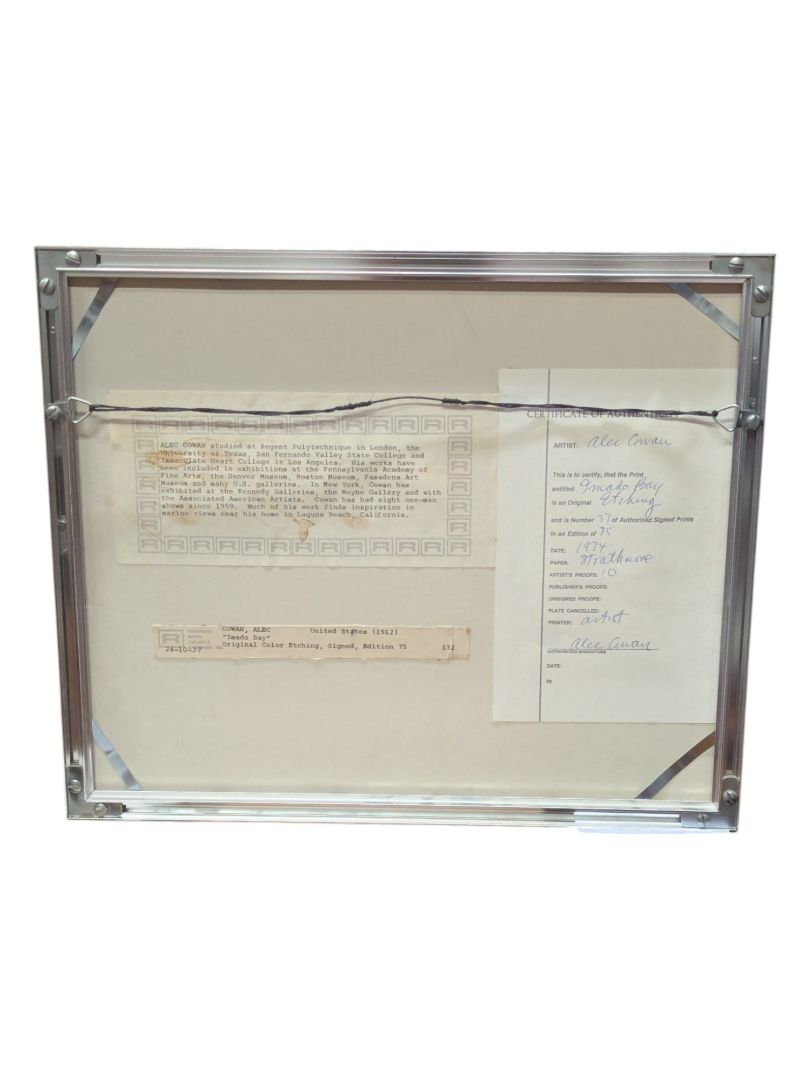 ALEC COWAN studied at Regent Polytechnique in London, the
University of Texas, San Fernando Valley State College and
Immaculate Heart College in Los Angeles. His works have
been included in exhibitions at the Pennsylvania Academy of
Fine Arts, the Denver Museum, Boston Museum, Pasadena Art
Museum and many U.S. galleries. In New York, Cowan has
exhibited at the Kennedy Galleries, the Weyhe Gallery and with
the Associated American Artists. Cowan has had eight one-man
shows since 1959. Much of his work finds inspiration in
marine views near his home in Laguna Beach, California.
COWAN, ALEC United States (1912)
"Imado Bay"
Original Color Etching, Signed, Edition 75 $32
24-10-37
CERTIFICATE OF AUTHENTICITY
ARTIST: Alec Cowan
This is to certify, that the Print,
entitled Imado Bay
is an Original Etching
and is Number 37 of Authorized Signed Prints
in an Edition of 75
DATE: 1974
PAPER: Strathmore
ARTIST'S PROOFS: 10
PUBLISHER'S PROOFS:
UNSIGNED PROOFS:
PLATE CANCELLED:
PRINTER: artist
Alec Cowan
AUTHORIZED SIGNATURE
DATE:
by